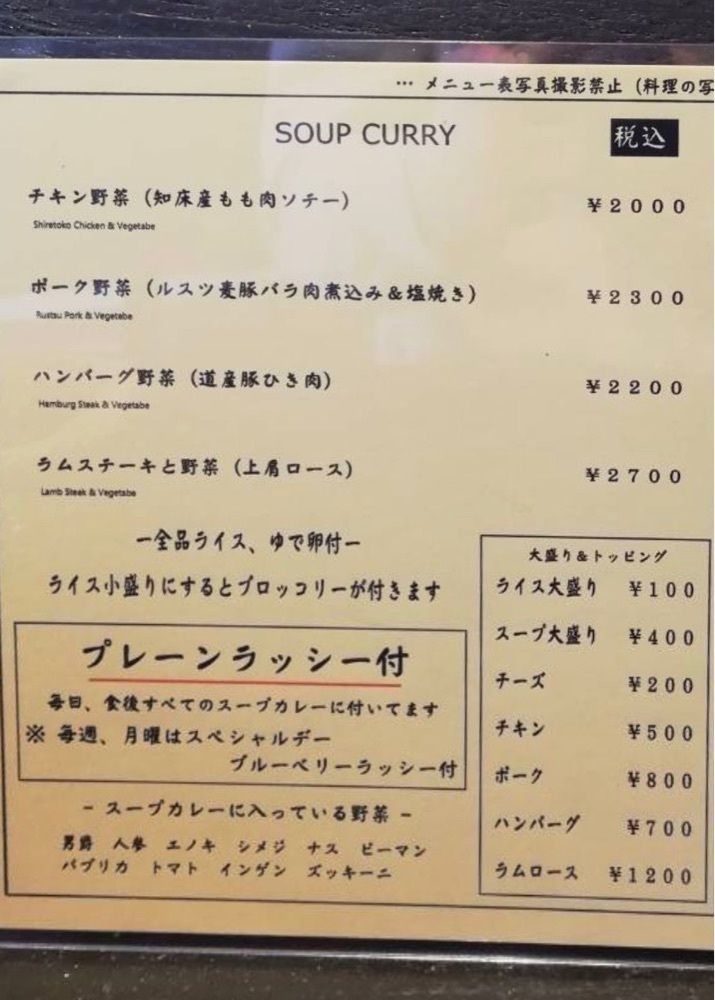 … メニュー表写真撮影禁止 (料理の写
SOUP CURRY
税込
チキン野菜 (知床産もも肉ソテー) ¥2000
Shiretoko Chicken & Vegetabe
ポーク野菜 (ルスツ麦豚バラ肉煮込み&塩焼き) ¥2300
Rustsu Pork & Vegetebe
ハンバーグ野菜 (道産豚ひき肉) ¥2200
Hamburg Steak & Vegetabe
ラムステーキと野菜 (上肩ロース) ¥2700
Lamb Steak & Vegetabe
ー全品ライス、ゆで卵付ー
ライス小盛りにするとブロッコリーが付きます
プレーンラッシー付
毎日、食後すべてのスープカレーに付いてます
※ 毎週、月曜はスペシャルデー
ブルーベリーラッシー付
- スープカレーに入っている野菜 -
男爵 人参 エノキ シメジ ナス ピーマン
パプリカ トマト インゲン ズッキーニ
大盛り&トッピング
ライス大盛り ¥100
スープ大盛り ¥400
チーズ ¥200
チキン ¥500
ポーク ¥800
ハンバーグ ¥700
ラムロース ¥1200